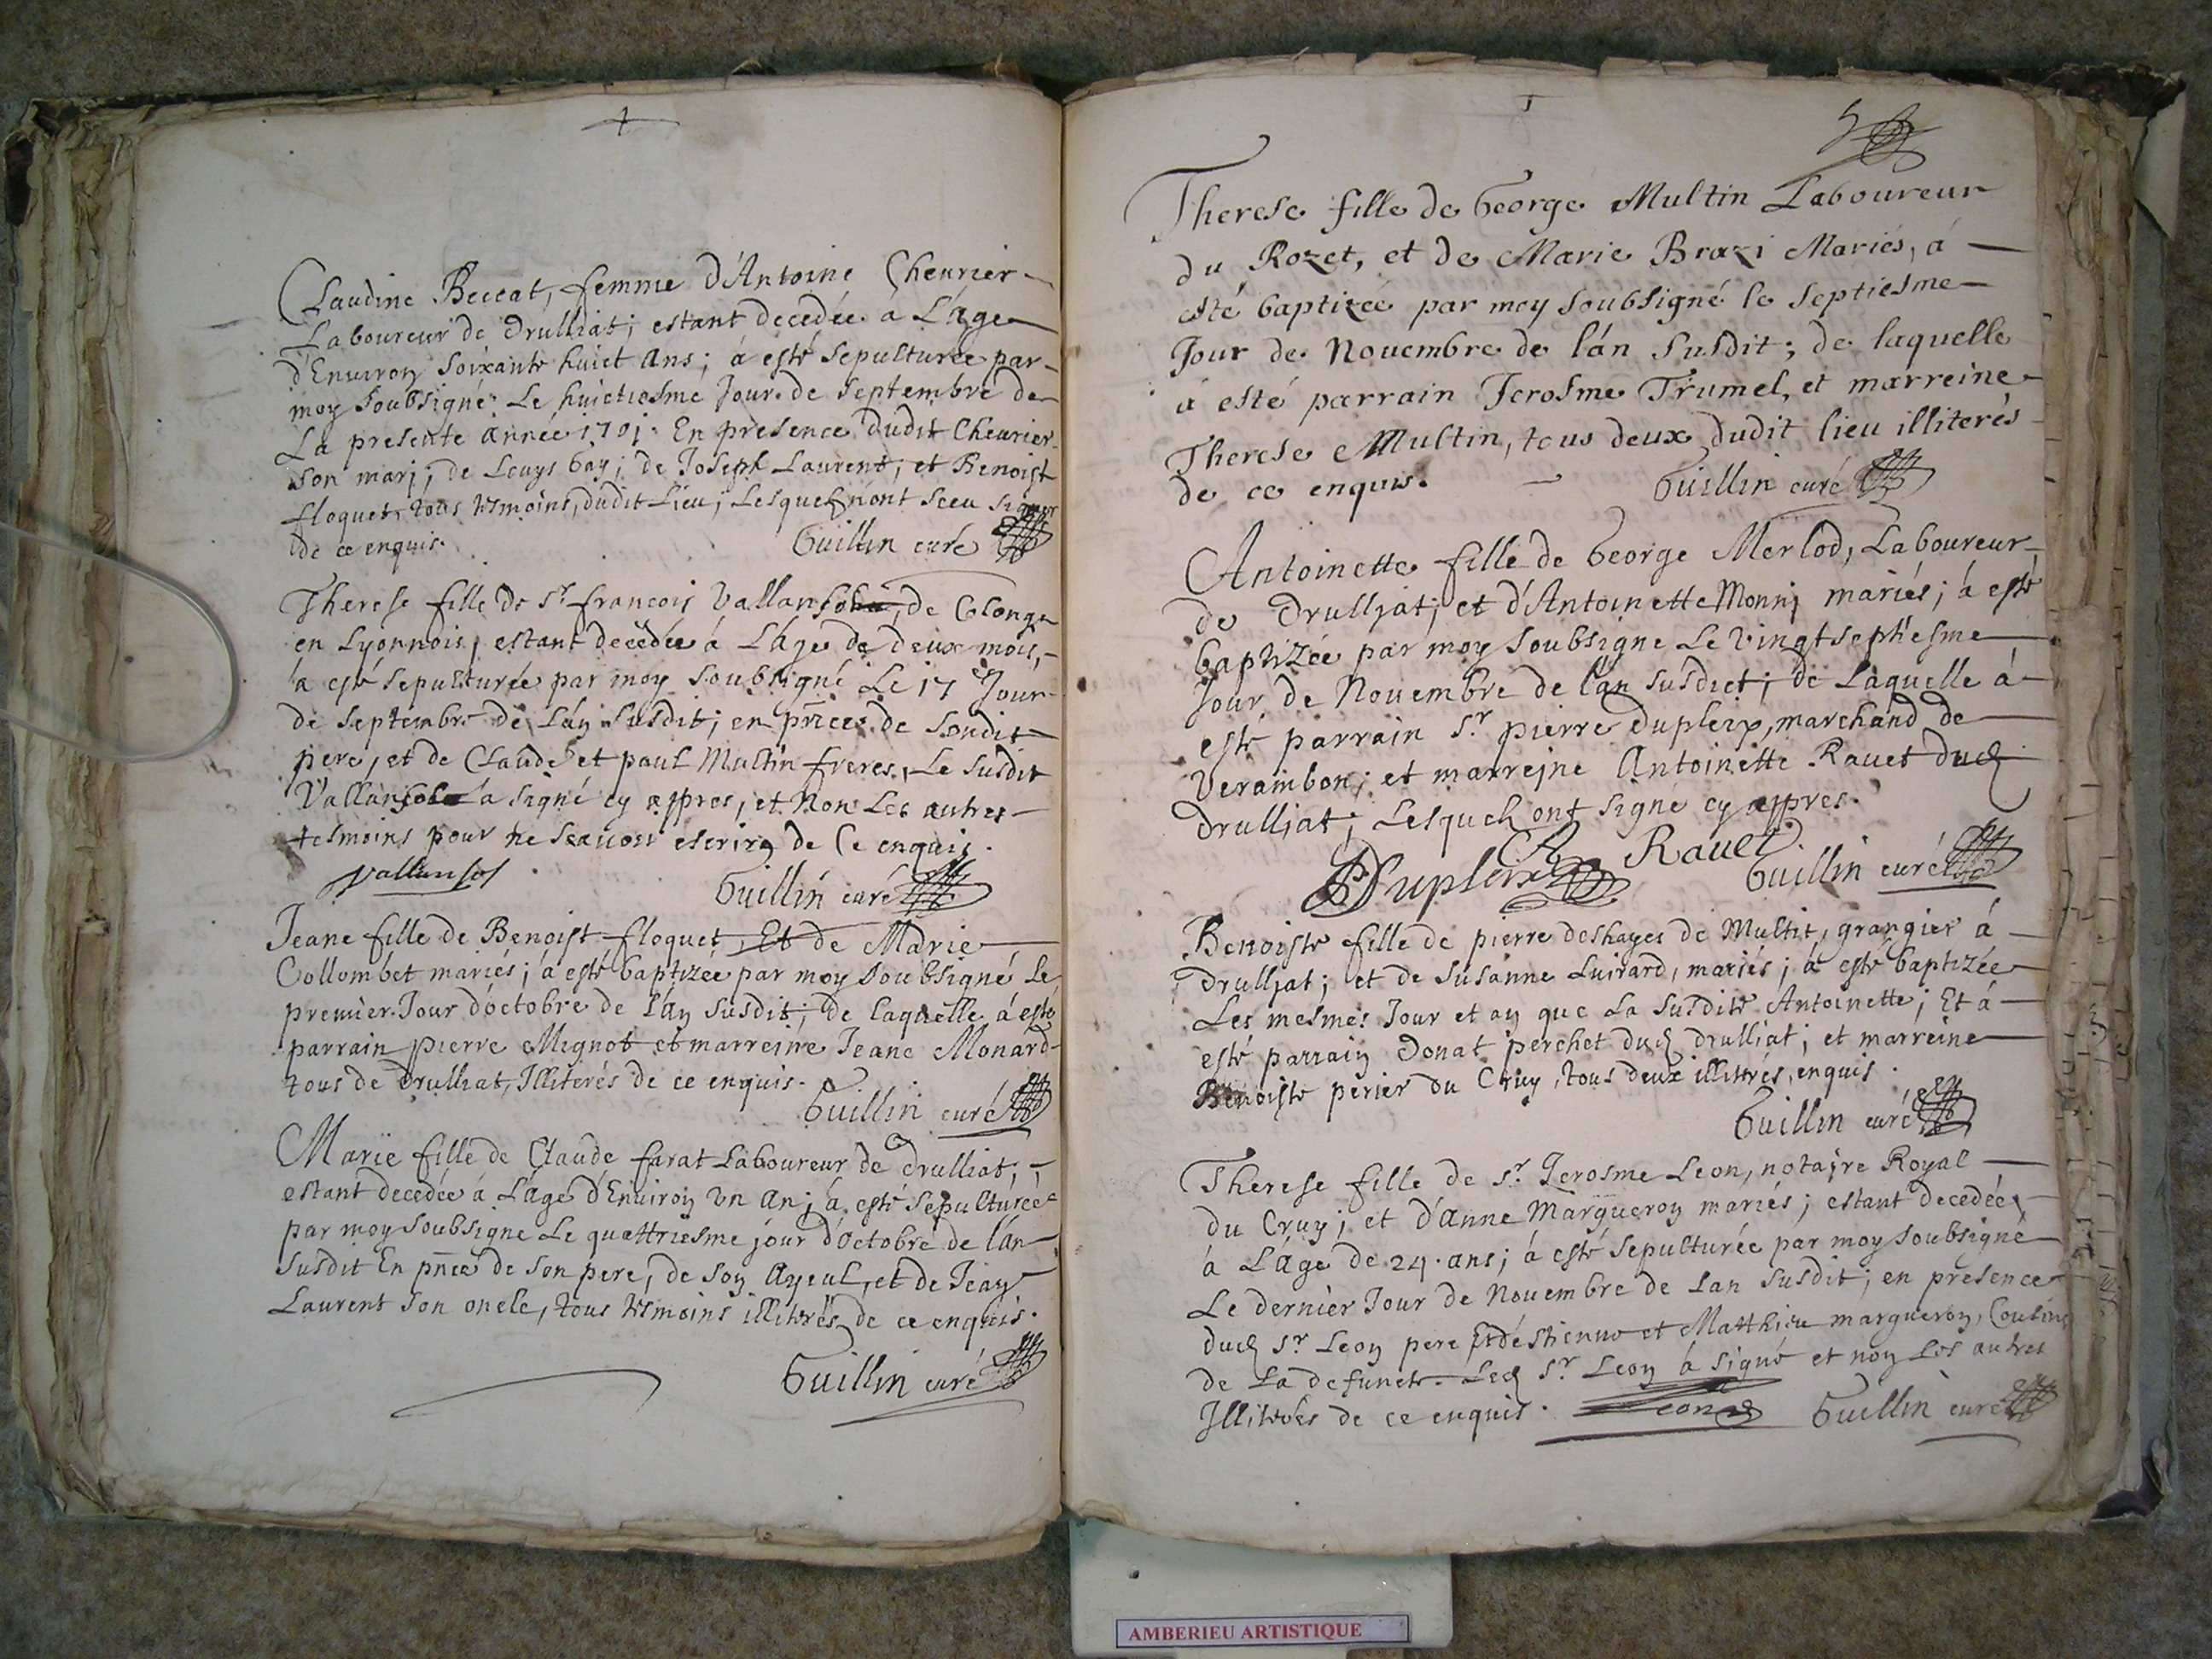 Claudine Beccat, femme d'Antoine Cheurier
Laboureur de Drulliat; estant decedée á L'áge
d'Enuiron soixante huict ans; á esté sepulturée par
moy soubsigné Le huictiesme Jour de Septembre de
La presente année 1701. En presence dudit Cheurier
son marj; de Louys bay; de Joseph Laurent, et Benoist
floquet, tous tesmoins, dudit Lieu; Lesquels n'ont sceu signer
de ce enquis. Guillin curé
Therese fille de Sr. francois Vallansol, de Colonge
en Lyonnois, estant decedée á L'áge de deux mois,
á esté sepulturée par moy soubsigné Le 17 Jour
de Septembre de L'án susdit; en pnce de sondit
pere, et de Claude et paul Multin freres, Le susdit
Vallansol a signé cy appres, et Non Les autres
tesmoins pour ne scauoir escrire de Ce enquis.
Vallansol Guillin curé
Jeane fille de Benoist floquet, Et de Marie
Collombet mariés; á esté baptizée par moy soubsigné Le
premier Jour d'octobre de L'án susdit; de laquelle á esté
parrain pierre Mignot et marreine Jeane Monard
tous de Drulliat, Illiterés de ce enquis.
Guillin curé
Marie fille de Claude farat Laboureur de Drulliat;
estant decedée á L'áge d'Enuiron Vn An; á esté sepulturée
par moy soubsigné Le quattriesme jour d'octobre de l'án
susdit En pnce de son pere, de son Ayeul, et de Jean
Laurent son oncle, tous tesmoins illiterés de ce enquis.
Guillin curé
Therese fille de George Multin Laboureur
du Rozet, et de Marie Brazi Mariés, á
esté baptizée par moy soubsigné le septiesme
Jour de Nouembre de l'án susdit; de laquelle
á esté parrain Jerosme Trumel, et marreine
Therese Multin, tous deux dudit lieu illiterés
de ce enquis. Guillin curé
Antoinette fille de George Merlod, Laboureur
de Drulljat; et d'Antoinette Monnj mariés; á esté
baptizée par moy soubsigné Le vingt septiesme
Jour de Nouembre de l'án susdict; de Laquelle á
esté parrain Sr. pierre Dupleix, marchand de
Verambon; et marrejne Antoinette Rauet dud
Drulljat; Lesquels ont signé cy appres.
Dupleix A Rauet Guillin curé
Benoiste fille de pierre deshayes de Multit, grangier á
Drulljat; et de Susanne Luirard, mariés; á esté baptizée
Les mesmes Jour et an que La susdite Antoinette; Et á
esté parrain Donat perchet dud drulliat; et marreine
Benoiste perier du Cruy, tous deux illiterés, enquis.
Guillin curé
Therese fille de Sr. Jerosme Leon, notajre Royal
du Cruy; et d'anne Margueron mariés; estant decedée
á L'áge de 24. ans; á esté sepulturée par moy soubsigné
Le dernier Jour de Nouembre de Lan susdit; en presence
dud Sr. Leon pere Et d'estienne et Matthieu margueron, Cousins
de La defuncte. Led Sr. Leon á signé et non Les autres
Illiterés de ce enquis. Leon Guillin curé
AMBERIEU ARTISTIQUE